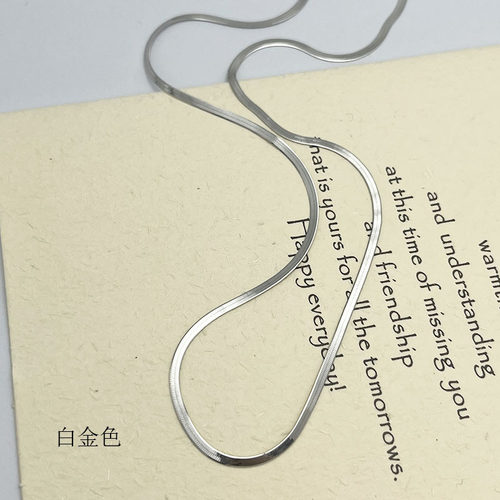 and understanding
at this time of missing you
and friendship
is yours for all the tomorrows.
Happy everyday!
白金色